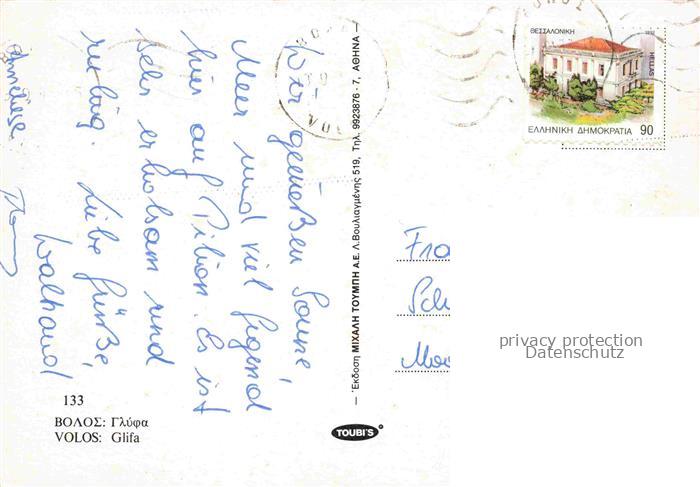 Wir genießen Sonne,
Meer und viel Gegend
hier auf Pilion. Es ist
sehr erholsam und
ruhig. Liebe Grüße,
Waltraud
Anneliese
133
ΒΟΛΟΣ: Γλύφα
VOLOS: Glifa
— Έκδοση ΜΙΧΑΛΗ ΤΟΥΜΠΗ Α.Ε. Λ.Βουλιαγμένης 519, Τηλ. 9923876 - 7, ΑΘΗΝΑ —
TOUBI'S
ΘΕΣΣΑΛΟΝΙΚΗ
HELLAS
ΕΛΛΗΝΙΚΗ ΔΗΜΟΚΡΑΤΙΑ 90
Fra
Sch
privacy protection
Datenschutz